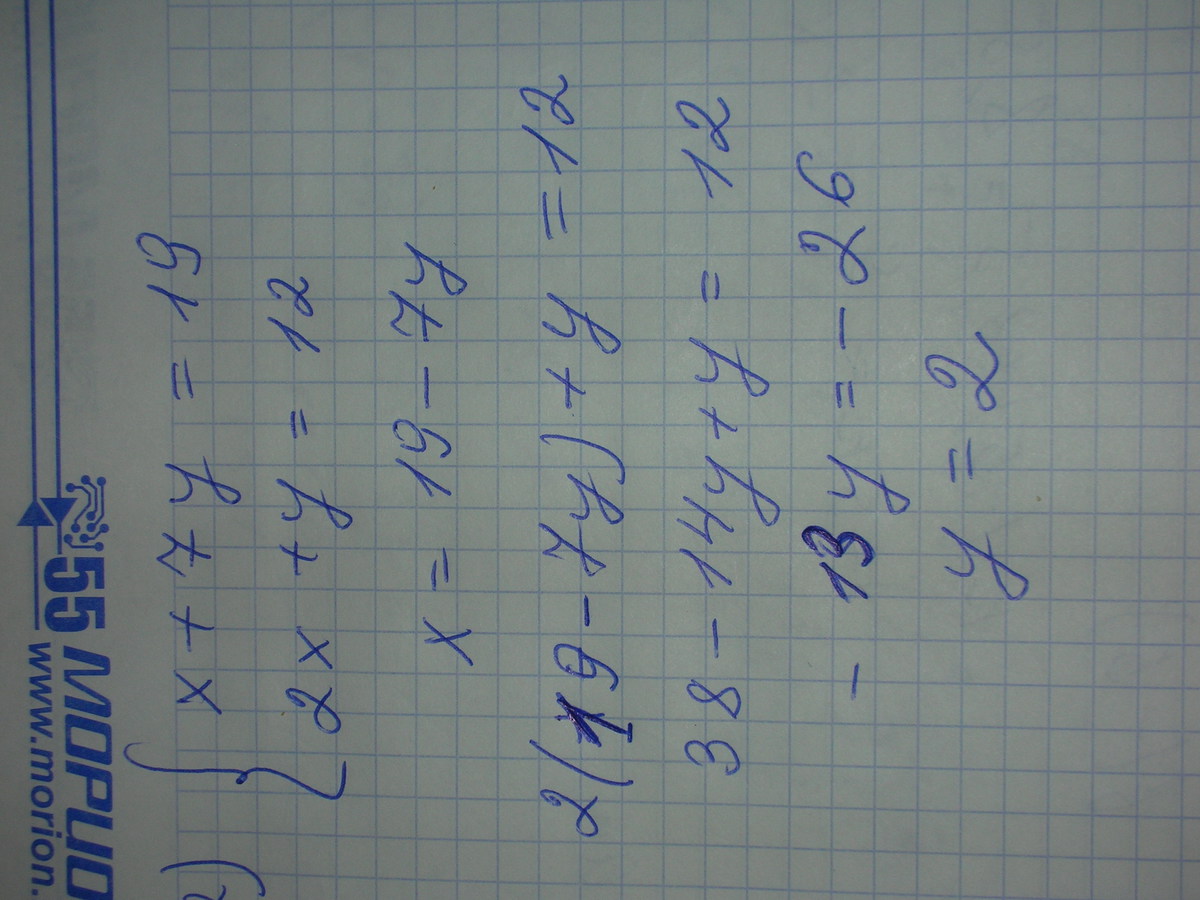 55 МОРИО
www.morion.
x + 7y = 19
2x + y = 12
x = 19 - 7y
2(19 - 7y) + y = 12
38 - 14y + y = 12
- 13y = - 26
y = 2